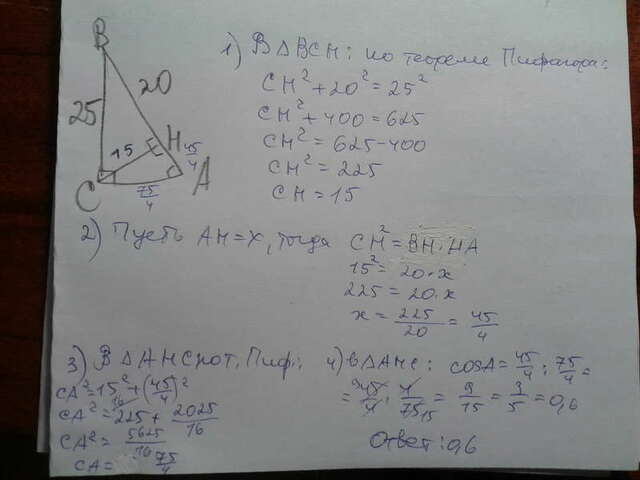 B
25
20
15
H
45/4
C
75/4
A
1) В △BCH: по теореме Пифагора:
CH² + 20² = 25²
CH² + 400 = 625
CH² = 625 - 400
CH² = 225
CH = 15
2) Пусть AH = x, тогда CH² = BH · HA
15² = 20 · x
225 = 20 · x
x = 225/20 = 45/4
3) В △AHC по т. Пиф:
CA² = 15² + (45/4)²
CA² = 225 + 2025/16
CA² = 5625/16
CA = 75/4
4) в △AHC: cosA = 45/4 : 75/4 =
= 45/4 · 4/75 = 9/15 = 3/5 = 0,6
Ответ: 0,6